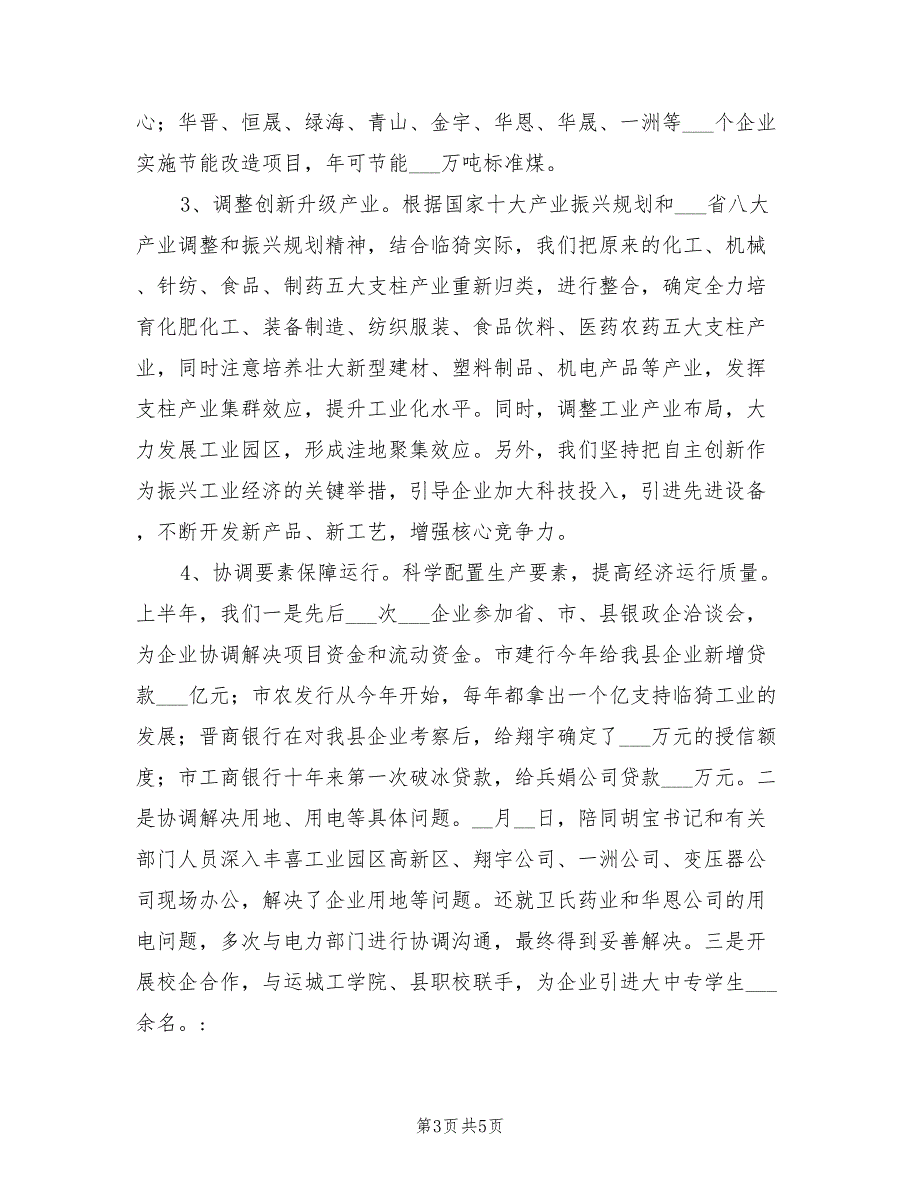 心；华晋、恒晟、绿海、青山、金宇、华恩、华晟、一洲等___个企业
实施节能改造项目，年可节能___万吨标准煤。
3、调整创新升级产业。根据国家十大产业振兴规划和___省八大
产业调整和振兴规划精神，结合临猗实际，我们把原来的化工、机械
、针纺、食品、制药五大支柱产业重新归类，进行整合，确定全力培
育化肥化工、装备制造、纺织服装、食品饮料、医药农药五大支柱产
业，同时注意培养壮大新型建材、塑料制品、机电产品等产业，发挥
支柱产业集群效应，提升工业化水平。同时，调整工业产业布局，大
力发展工业园区，形成洼地聚集效应。另外，我们坚持把自主创新作
为振兴工业经济的关键举措，引导企业加大科技投入，引进先进设备
，不断开发新产品、新工艺，增强核心竞争力。
4、协调要素保障运行。科学配置生产要素，提高经济运行质量。
上半年，我们一是先后___次___企业参加省、市、县银政企洽谈会，
为企业协调解决项目资金和流动资金。市建行今年给我县企业新增贷
款___亿元；市农发行从今年开始，每年都拿出一个亿支持临猗工业的
发展；晋商银行在对我县企业考察后，给翔宇确定了___万元的授信额
度；市工商银行十年来第一次破冰贷款，给兵娟公司贷款___万元。二
是协调解决用地、用电等具体问题。__月__日，陪同胡宝书记和有关
部门人员深入丰喜工业园区高新区、翔宇公司、一洲公司、变压器公
司现场办公，解决了企业用地等问题。还就卫氏药业和华恩公司的用
电问题，多次与电力部门进行协调沟通，最终得到妥善解决。三是开
展校企合作，与运城工学院、县职校联手，为企业引进大中专学生___
余名。:
第3页共5页